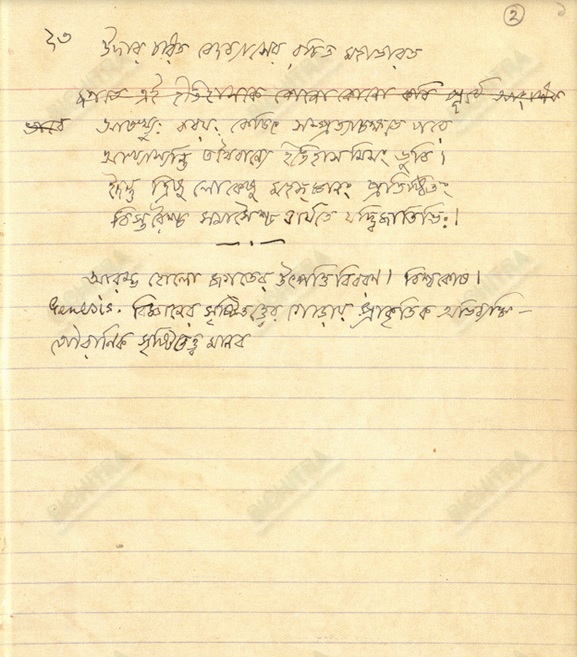 ২ ১
২৩ উদার চরিত বেদব্যাসের রচিত মহাভারত
জগতে এই ইতিহাসকে কোনো কোনো কবি পূর্বে আংশিক
ভাবে আচখ্যুঃ কবয়ঃ কেচিৎ সম্প্রত্যাচক্ষতে পরে
আখ্যাস্যন্তি তথৈবান্যে ইতিহাসমিমং ভুবি।
ইদন্তু ত্রিষু লোকেষু মহজ্জ্ঞানং প্রতিষ্ঠিতং
বিস্তরৈশ্চ সমাসৈশ্চ ধার্যতে যদ্দ্বিজাতিভিঃ।
আরম্ভ হোলো জগতের উৎপত্তি বিবরণ। বিশ্বকোষ।
Genesis. বিজ্ঞানের সৃষ্টিতত্ত্বের গোড়ায় প্রাকৃতিক অভিব্যক্তি –
পৌরাণিক সৃষ্টিতত্ত্ব মানব
BICHITRA